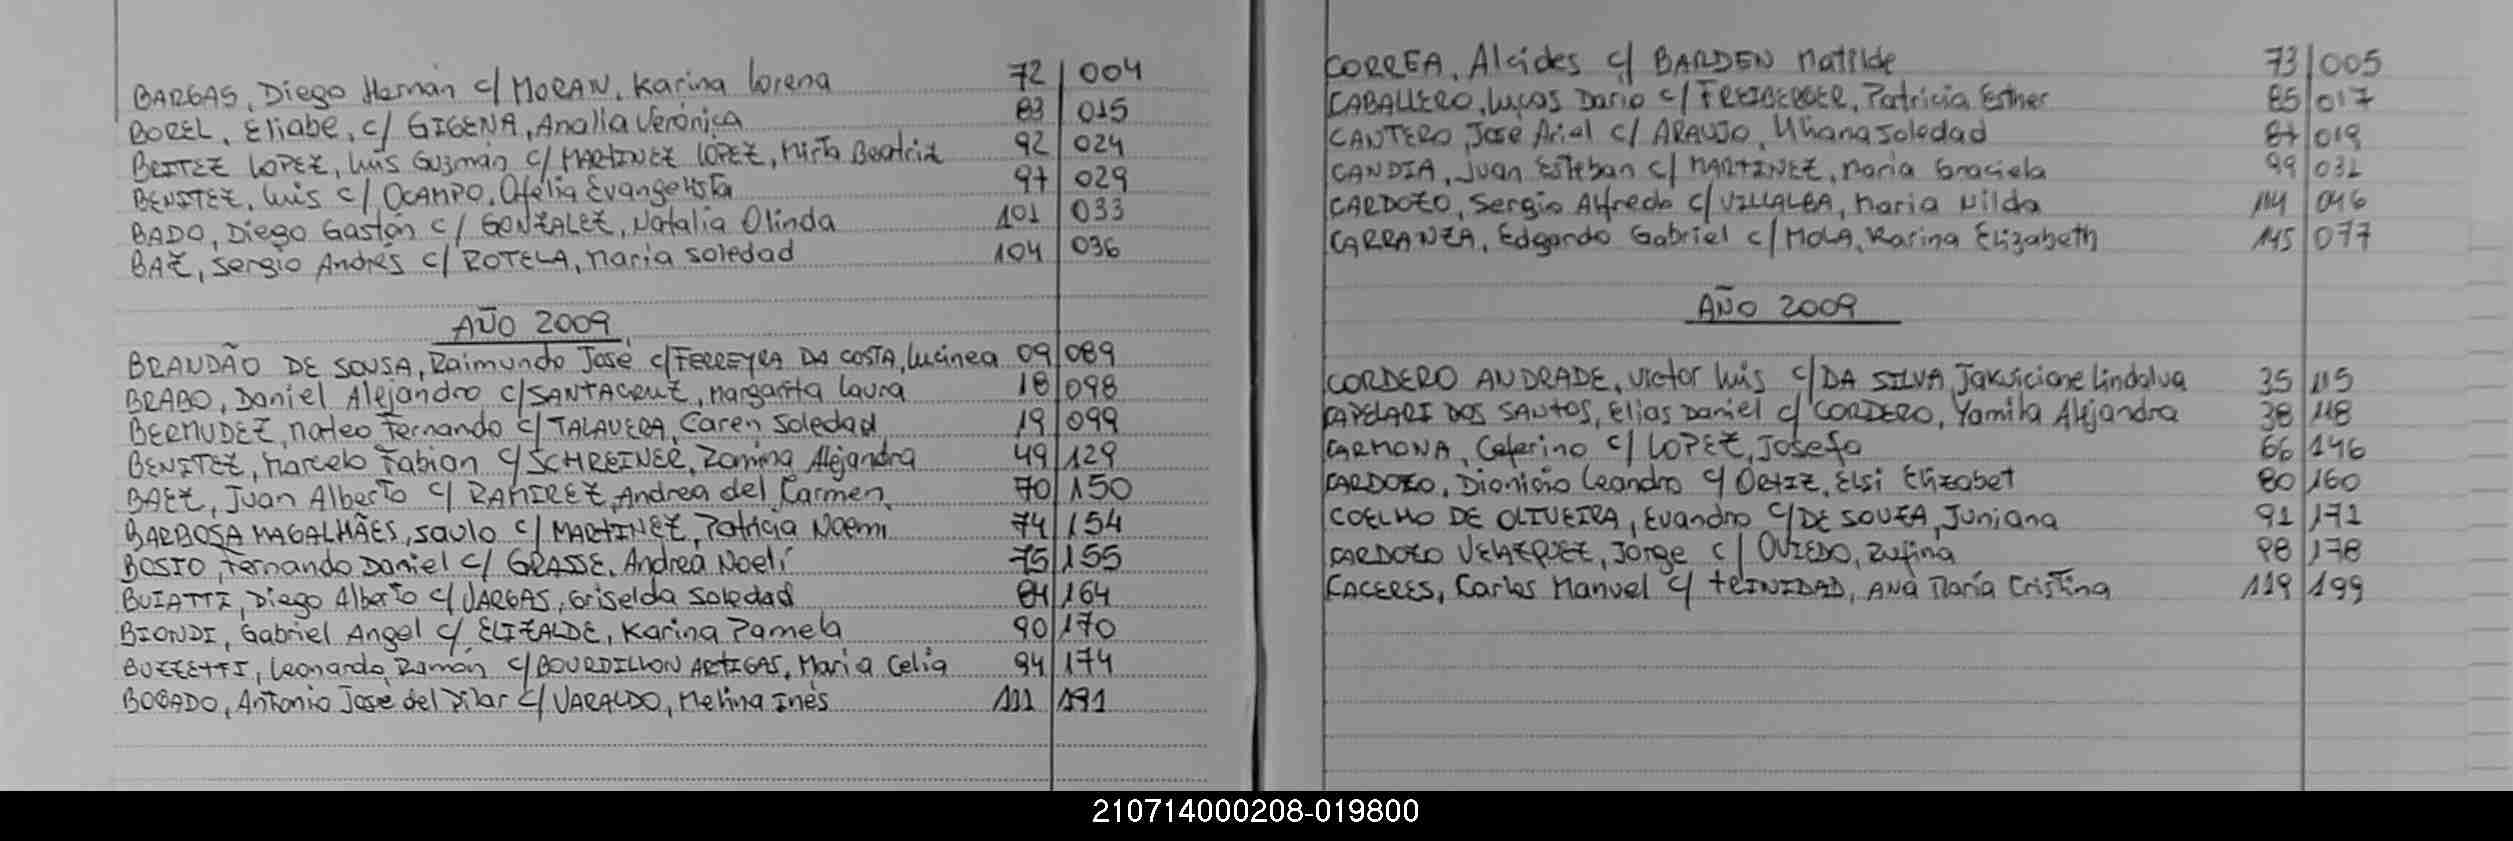 BARGAS, Diego Hernán c/ MORAN, Karina Lorena 72 004
BOREL, Eliabe, c/ GIGENA, Analía Verónica 83 015
BEITEZ LOPEZ, Luis Guzmán c/ MARTINEZ LOPEZ, Mirta Beatriz 92 024
BENITEZ, Luis c/ OCAMPO, Ofelia Evangelista 97 029
BADO, Diego Gastón c/ GONZALEZ, Natalia Olinda 101 033
BAZ, Sergio Andrés c/ ROTELA, Maria Soledad 104 036
AÑO 2009
BRANDÃO DE SOUSA, Raimundo José c/ FERREYRA DA COSTA, Lucinea 09 089
BRABO, Daniel Alejandro c/ SANTACRUZ, Margarita Laura 18 098
BERMUDEZ, Mateo Fernando c/ TALAVERA, Caren Soledad 19 099
BENITEZ, Marcelo Fabian c/ SCHREINER, Romina Alejandra 49 129
BAEZ, Juan Alberto c/ RAMIREZ, Andrea del Carmen 70 150
BARBOSA MAGALHÃES, Saulo c/ MARTINEZ, Patricia Noemi 74 154
BOSIO, Fernando Daniel c/ GRASSE, Andrea Noelí 75 155
BUIATTI, Diego Alberto c/ VARGAS, Griselda Soledad 84 164
BIONDI, Gabriel Angel c/ ELIZALDE, Karina Pamela 90 170
BUZZETTI, Leonardo Ramón c/ BOURDILLON ARTIGAS, Maria Celia 94 174
BOGADO, Antonio José del Pilar c/ VARALDO, Melina Inés 111 191
CORREA, Alcides c/ BARDEN Matilde 73 005
CABALLERO, Lucas Dario c/ FREIBERGER, Patricia Esther 85 017
CANTERO, Jose Ariel c/ ARAUJO, Liliana Soledad 87 019
CANDIA, Juan Esteban c/ MARTINEZ, Maria Graciela 99 031
CARDOZO, Sergio Alfredo c/ VILLALBA, Maria Nilda 114 046
CARRANZA, Edgardo Gabriel c/ MOLA, Karina Elizabeth 145 077
AÑO 2009
CORDERO ANDRADE, Victor Luis c/ DA SILVA, Lindalva 35 115
CAPELARI DOS SANTOS, Elias Daniel c/ CORDERO, Yamila Alejandra 38 118
CARMONA, Ceferino c/ LOPEZ, Josefa 66 146
CARDOZO, Dionicio Leandro c/ ORTIZ, Elsi Elizabet 80 160
COELHO DE OLIVEIRA, Evandro c/ DE SOUZA, Juniana 91 171
CARDOZO VELAZQUEZ, Jorge c/ OVIEDO, Rufina 98 178
CACERES, Carlos Manuel c/ TRINIDAD, Ana María Cristina 119 199
210714000208-019800